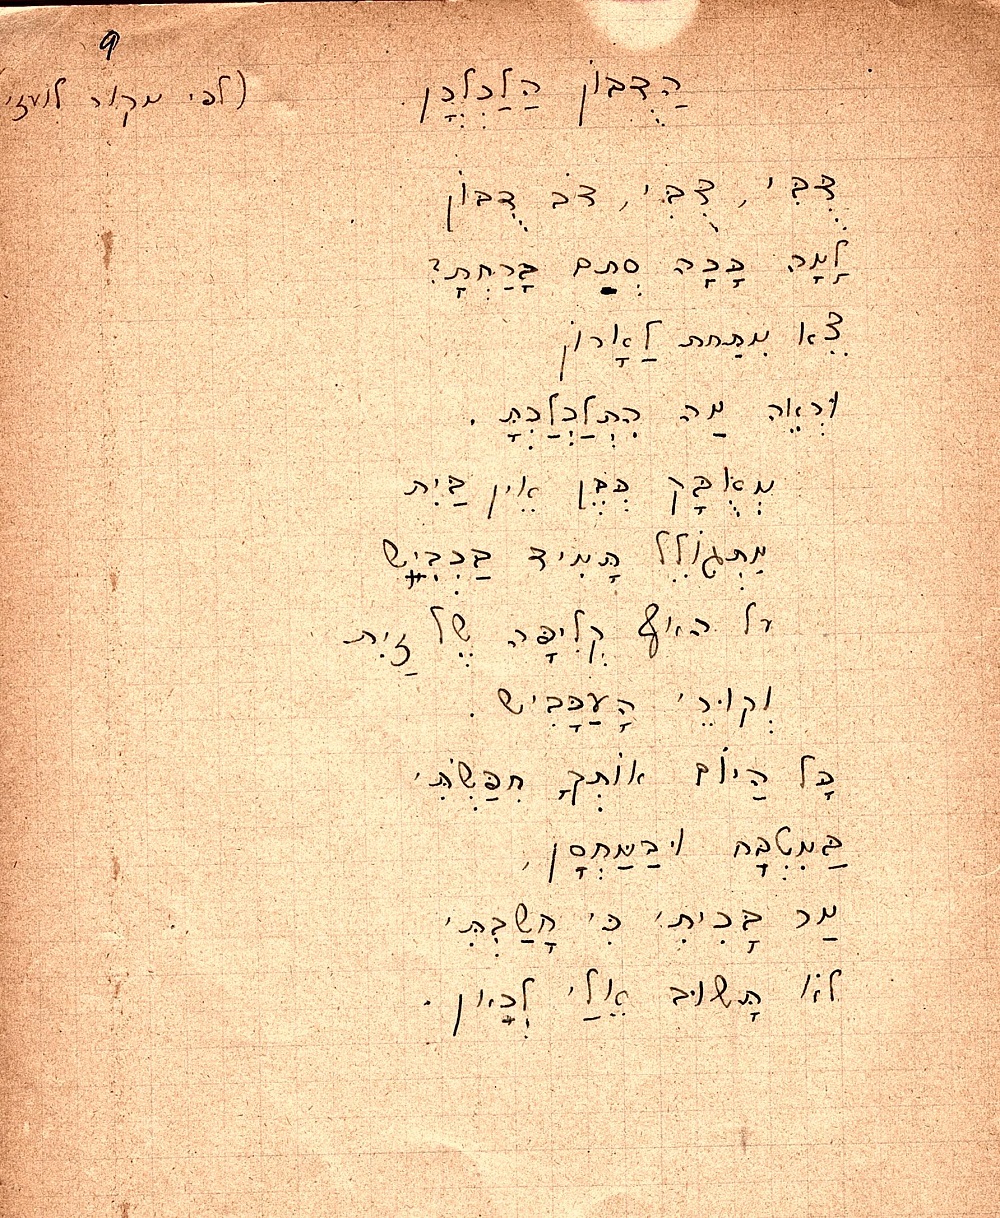 9
הַדֻּבּוֹן הַלַכְלְכָן
(לפי מקור לועזי)
דֻּבִּי, דֻּבִּי, דֹב דֻבּוֹן
לָמָּה כָּכָה סְתַם בָּרַחְתָּ?
צֵא מִתַּחַת לַאָרוֹן
וּרְאֵה מַה הִתְלַכְלַכְתָּ.
מְאֻבָּק כְּבֶן אֵין בַּיִת
מִתְגּוֹלֵל תָּמִיד בַּכְּבִישׁ
על האף קְלִיפָּה שֶׁל זַיִת
וְקוּרֵי הָעַכָּבִישׁ.
כָּל הַיוֹם אוֹתְךָ חִפַּשְׂתִּי
בַּמִטְבָּח וּבַמַּחְסָן,
מַר בָּכִיתִי כִּי חָשַׁבְתִּי
לֹא תָּשׁוּב אֵלַי לְכָאן.